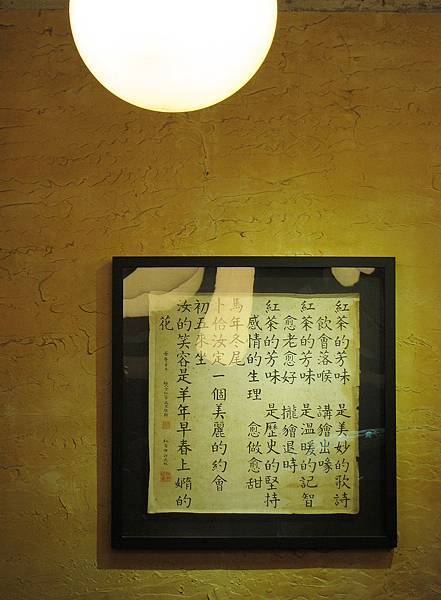 紅茶的芳味 是美妙的歌詩
飲會落喉 講獪出喙
紅茶的芳味 是溫暖的記智
愈老愈好 攏獪退時
紅茶的芳味 是歷史的堅持
感情的生理 愈做愈甜
馬年冬尾
卜恰汝定一個美麗的約會
初五來坐
汝的笑容是羊年早春上媠的
花